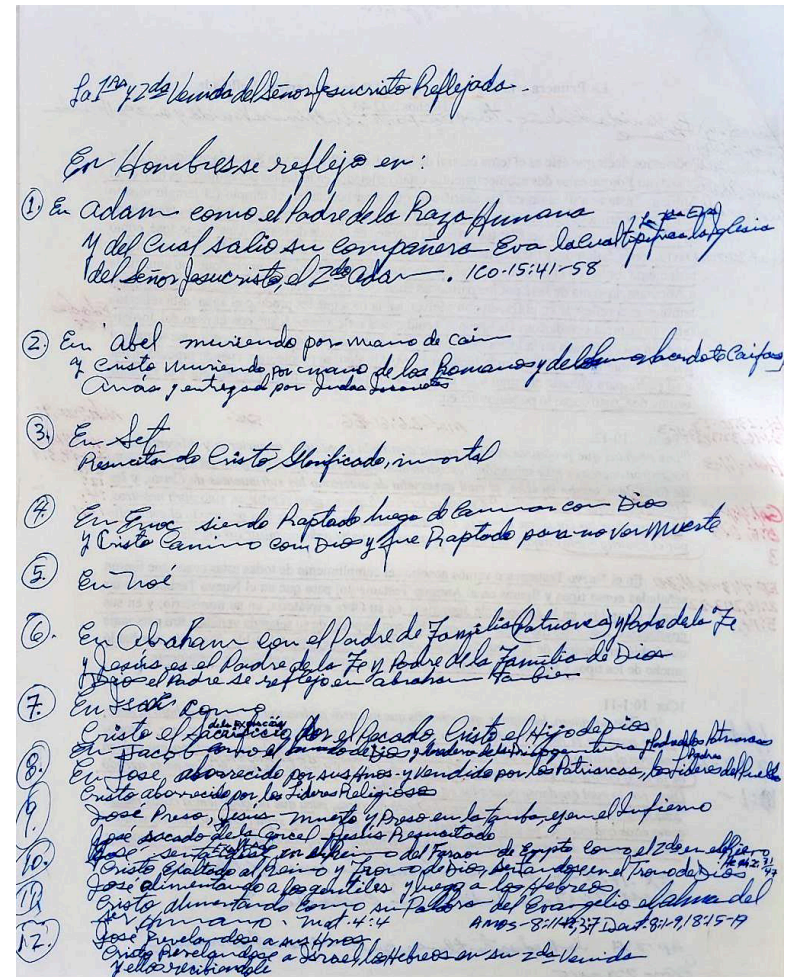 La 1ra y 2da Venida del Señor Jesucristo Reflejada.
En Hombres se reflejo en:
1. En Adam como el Padre de la Raza Humana
(la 1ra Eva)
y del cual salio su compañera Eva la cual tipifica la Iglesia
del Señor Jesucristo el 2do Adam. 1CO-15:41-58
2. En Abel muriendo por mano de cain
y Cristo muriendo por mano de los Romanos y del sumo sacerdote Caifas,
Anás y entregad por Judas Iscariotes
3. En Set
Resucitando Cristo Glorificado, inmortal
4 En Enoc siendo Raptado luego de Caminar con Dios
y Cristo Camino con Dios y fue Raptado para no ver Muerte
5. En Noé
6. En Abraham con el Padre de Familia (Patriarca) y Padre de la Fe
y Jesús es el Padre de la Fe y Padre de la Familia de Dios
Dios el Padre se reflejo en Abraham tambien
7. En Isaac como
de la Expiación
Cristo el Sacrificio por el Pecado, Cristo el Hijo de Dios
8. En Jacob como el de Dios y heredero de la Primogenitura y Padre de los Patriarcas
En Jose, aborrecido por sus Hnos y Vendido por los Patriarcas, los Lideres del Pueblo
Cristo aborrecido por los Lideres Religiosos
9. José Preso, Jesus muerto y Preso en la tumba, y en el Infierno
José sacado de la Carcel, Jesús Resucitado
10. José sentado en el Reino del Faraon de Egipto como el 2do en el Reino
Cristo Exaltado al Reino y Trono de Dios, sentandose en el Trono de Dios
11 José alimentando a los gentiles y luego a los Hebreos
Cristo alimentando como su Palabra del Evangelio el alma del
Ser Humano. Mat. 4:4 AMOS-8:11- Deut. 8:1-9, 18:15-19
12. José Revelandose a sus Hnos
Cristo Revelandose a Israel, los Hebreos en su 2da Venida
y ellos recibiendole